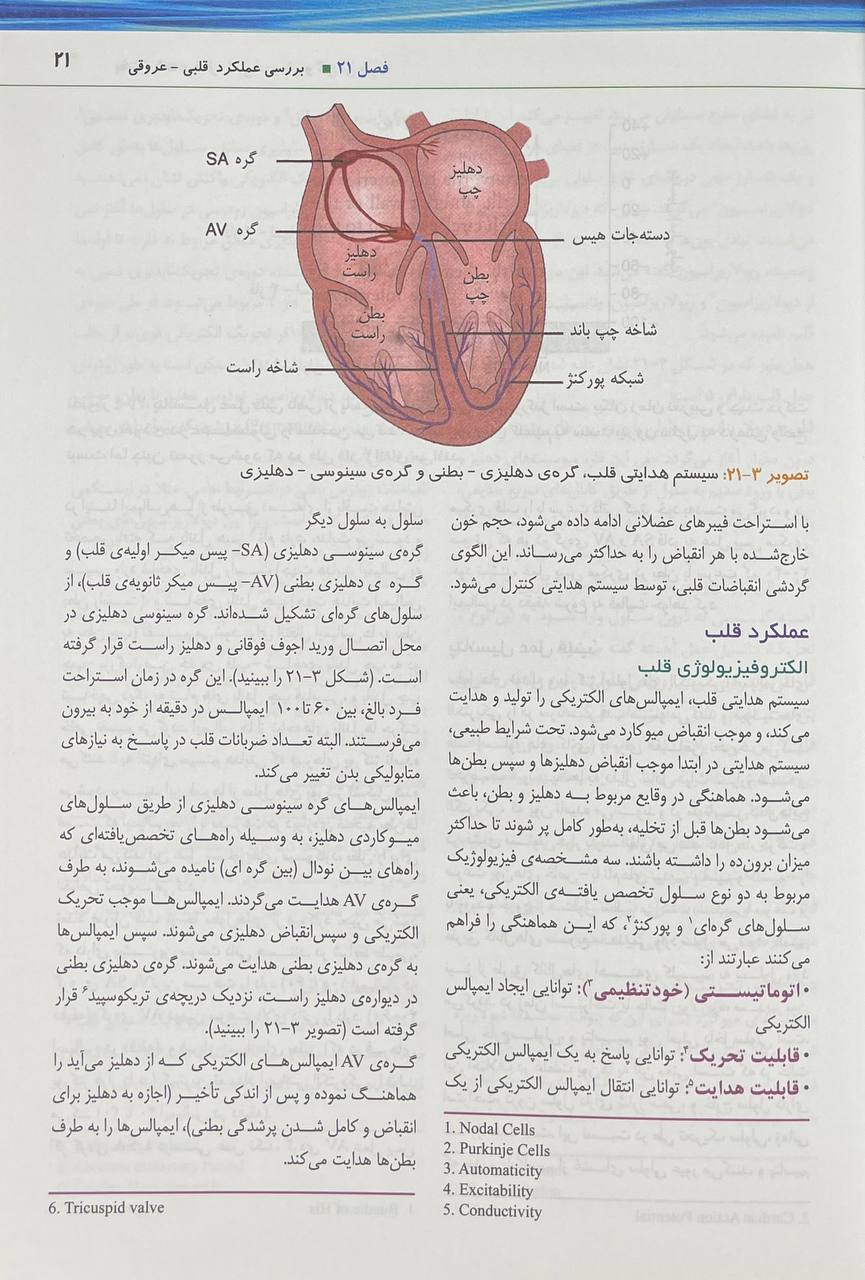 فصل ۲۱ ■ بررسی عملکرد قلبی - عروقی
۲۱
گره SA
گره AV
دهلیز
چپ
دهلیز
راست
بطن
چپ
بطن
راست
دسته‌جات هیس
شاخه چپ باند
شاخه راست
شبکه پورکنژ
تصویر ۳-۲۱: سیستم هدایتی قلب، گره‌ی دهلیزی - بطنی و گره‌ی سینوسی - دهلیزی
با استراحت فیبرهای عضلانی ادامه داده می‌شود، حجم خون
خارج‌شده با هر انقباض را به حداکثر می‌رساند. این الگوی
گردشی انقباضات قلبی، توسط سیستم هدایتی کنترل می‌شود.
عملکرد قلب
الکتروفیزیولوژی قلب
سیستم هدایتی قلب، ایمپالس‌های الکتریکی را تولید و هدایت
می‌کند، و موجب انقباض میوکارد می‌شود. تحت شرایط طبیعی،
سیستم هدایتی در ابتدا موجب انقباض دهلیزها و سپس بطن‌ها
می‌شود. هماهنگی در وقایع مربوط به دهلیز و بطن، باعث
می‌شود بطن‌ها قبل از تخلیه، به‌طور کامل پر شوند تا حداکثر
میزان برون‌ده را داشته باشند. سه مشخصه‌ی فیزیولوژیک
مربوط به دو نوع سلول تخصص یافته‌ی الکتریکی، یعنی
سلول‌های گره‌ای۱ و پورکنژ۲، که این هماهنگی را فراهم
می‌کنند عبارتند از:
• اتوماتیستی (خودتنظیمی۳): توانایی ایجاد ایمپالس
الکتریکی
• قابلیت تحریک۴: توانایی پاسخ به یک ایمپالس الکتریکی
• قابلیت هدایت۵: توانایی انتقال ایمپالس الکتریکی از یک
1. Nodal Cells
2. Purkinje Cells
3. Automaticity
4. Excitability
5. Conductivity
سلول به سلول دیگر
گره‌ی سینوسی دهلیزی (SA- پیس میکر اولیه‌ی قلب) و
گره ی دهلیزی بطنی (AV- پیس میکر ثانویه‌ی قلب)، از
سلول‌های گره‌ای تشکیل شده‌اند. گره سینوسی دهلیزی در
محل اتصال ورید اجوف فوقانی و دهلیز راست قرار گرفته
است. (شکل ۳-۲۱ را ببینید). این گره در زمان استراحت
فرد بالغ، بین ۶۰ تا۱۰۰ ایمپالس در دقیقه از خود به بیرون
می‌فرستند. البته تعداد ضربانات قلب در پاسخ به نیازهای
متابولیکی بدن تغییر می‌کند.
ایمپالس‌های گره سینوسی دهلیزی از طریق سلول‌های
میوکاردی دهلیز، به وسیله راه‌های تخصص‌یافته‌ای که
راه‌های بین نودال (بین گره ای) نامیده می‌شوند، به طرف
گره‌ی AV هدایت می‌گردند. ایمپالس‌ها موجب تحریک
الکتریکی و سپس‌انقباض دهلیزی می‌شوند. سپس ایمپالس‌ها
به گره‌ی دهلیزی بطنی هدایت می‌شوند. گره‌ی دهلیزی بطنی
در دیواره‌ی دهلیز راست، نزدیک دریچه‌ی تریکوسپید۶ قرار
گرفته است (تصویر ۳-۲۱ را ببینید).
گره‌ی AV ایمپالس‌های الکتریکی که از دهلیز می‌آید را
هماهنگ نموده و پس از اندکی تأخیر (اجازه به دهلیز برای
انقباض و کامل شدن پرشدگی بطنی)، ایمپالس‌ها را به طرف
بطن‌ها هدایت می‌کند.
6. Tricuspid valve